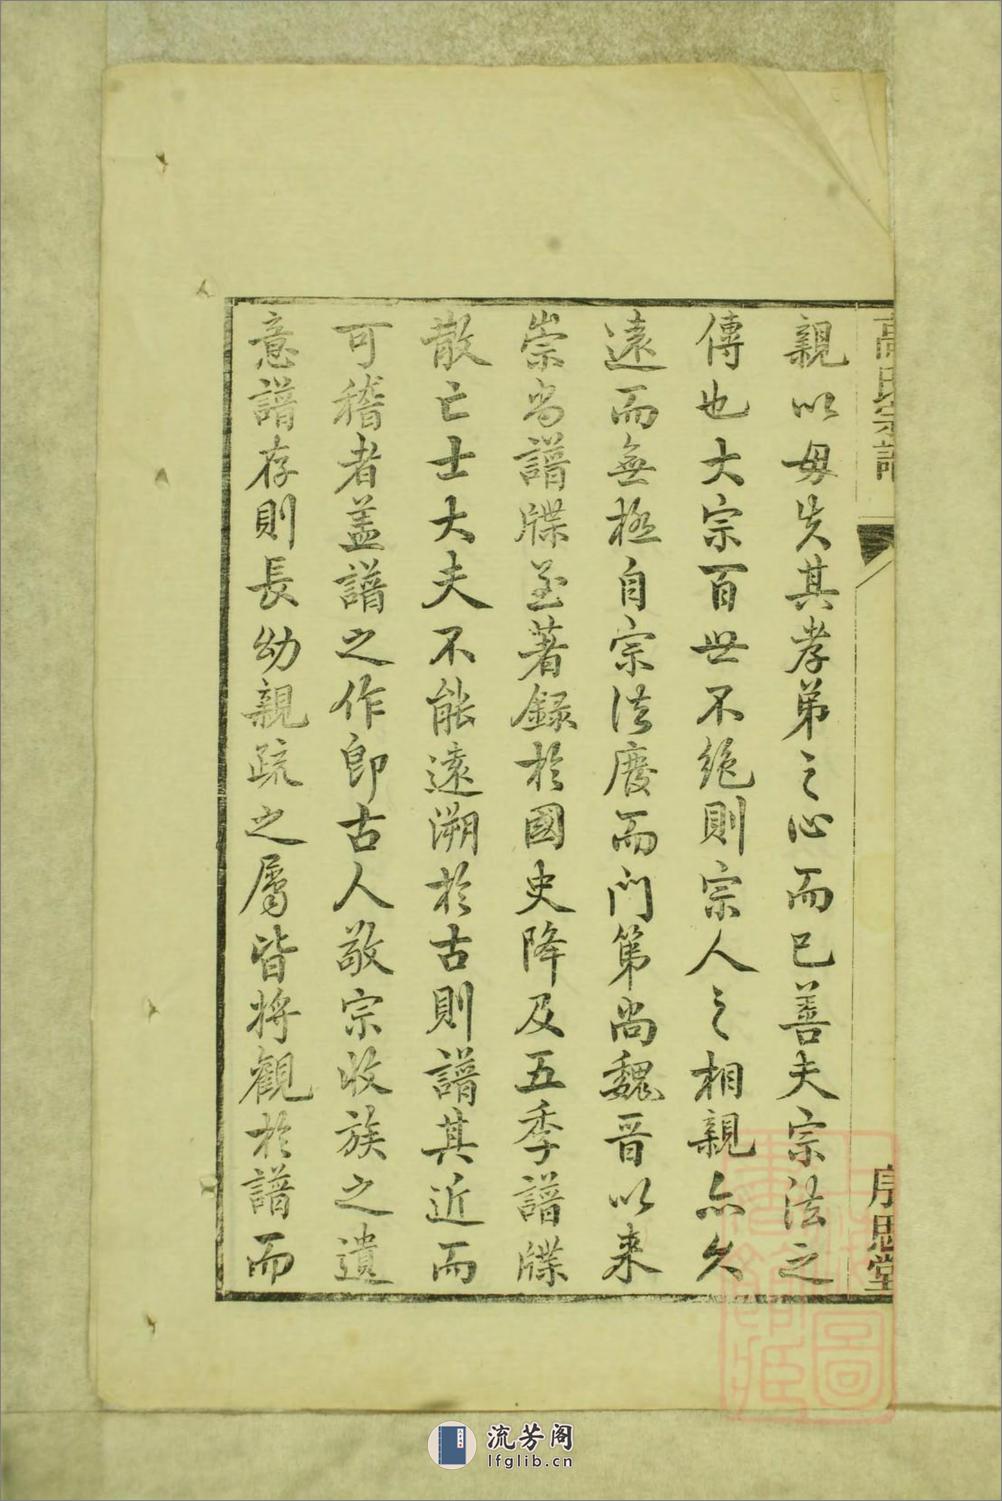 高氏宗譜
序思堂
親以毋失其孝弟之心而已善夫宗法之
傳也大宗百世不絶則宗人之相親亦久
遠而無極自宗法廢而門第尚魏晋以来
崇尚譜牒至著録於國史降及五季譜牒
散亡士大夫不能遠溯於古則譜其近而
可稽者盖譜之作即古人敬宗收族之遺
意譜存則長幼親疏之屬皆將觀於譜而
流芳阁
lfglib.cn